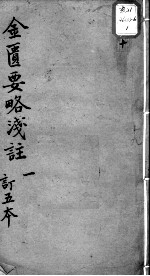 金匱要略淺註
一
訂五本